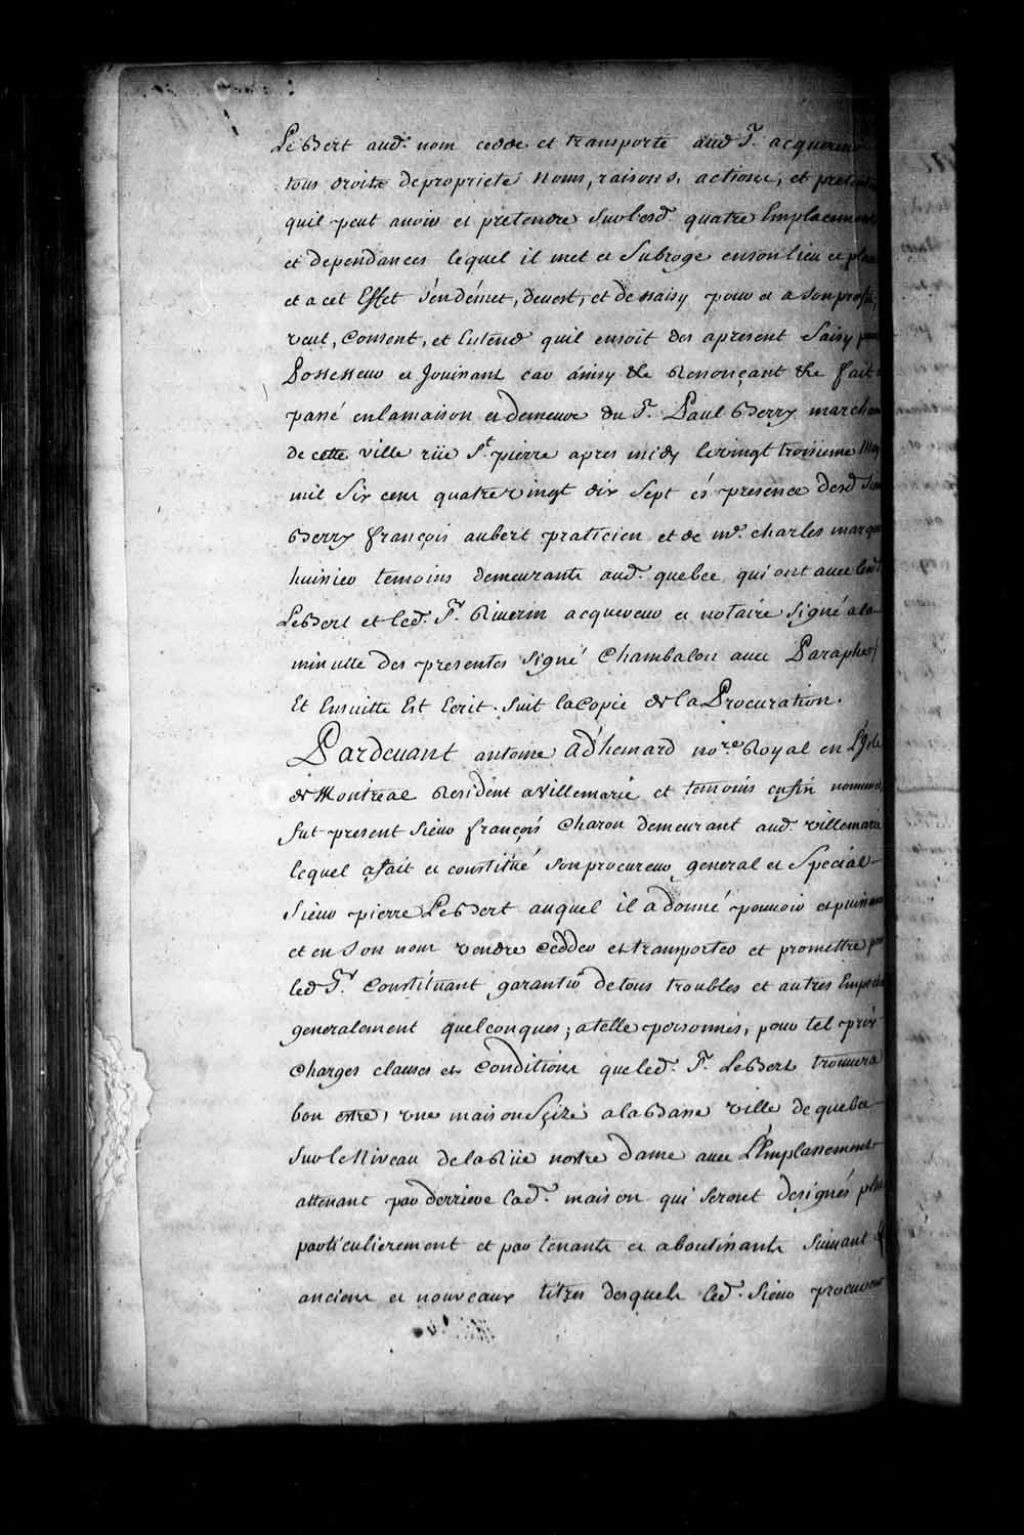 LeBert aud. nom cedde et transporte aud Sr. acquereur
tous droits de proprieté noms, raisons, actions, et
quil peut avoir et pretendre sur lesd. quatre Emplacemens
et dependances lequel il met et Subroge en son lieu et place
et a cet Effet s'en démet, devest, et dessaisy pour et a son profit,
veut, Consent, et Entend quil en soit des apresent Saisy
Possesseur et Jouissant car ainsy &c Renonçant &c fait
passé en la maison et demeure du Sr. Paul Berry marchand
de cette ville rüe St. pierre apres midy le vingt troisieme May
mil six cens quatre vingt dix sept és presence desd
Berry françois aubert praticien et de me. charles marquis
huissier temoins demeurants aud. quebec qui ont avec led.
LeBert et led. Sr. Riverin acquereur et notaire signé a la
minutte des presentes signé Chambalon avec Paraphe /
Et Ensuitte Est Ecrit. suit la Copie de la Procuration.
Pardevant antoine ad'hemard nore Royal en L'Isle
de Montreal Resident a Villemarie et temoins enfin nommés
fut present sieur françois Charon demeurant aud. villemarie
lequel a fait et constitué son procureur general et Special
sieur pierre LeBert auquel il a donné pouvoir et puissance
et en son nom vendre cedder et transporter et promettre
led Sr. Constituant garantir de tous troubles et autres
generalement quelconques; a telle personnes, pour tel prix
Charges clauses et Conditions que led. Sr. LeBert trouvera
bon estre, une maison scize a la Basse ville de quebec
sur le Niveau de la Rüe nostre dame avec L'Emplassement
attenant par derriere lad. maison qui seront designés plus
particulierement et par tenants et aboutissants suivant
anciens et nouveaux titres desquels led. sieur procureur